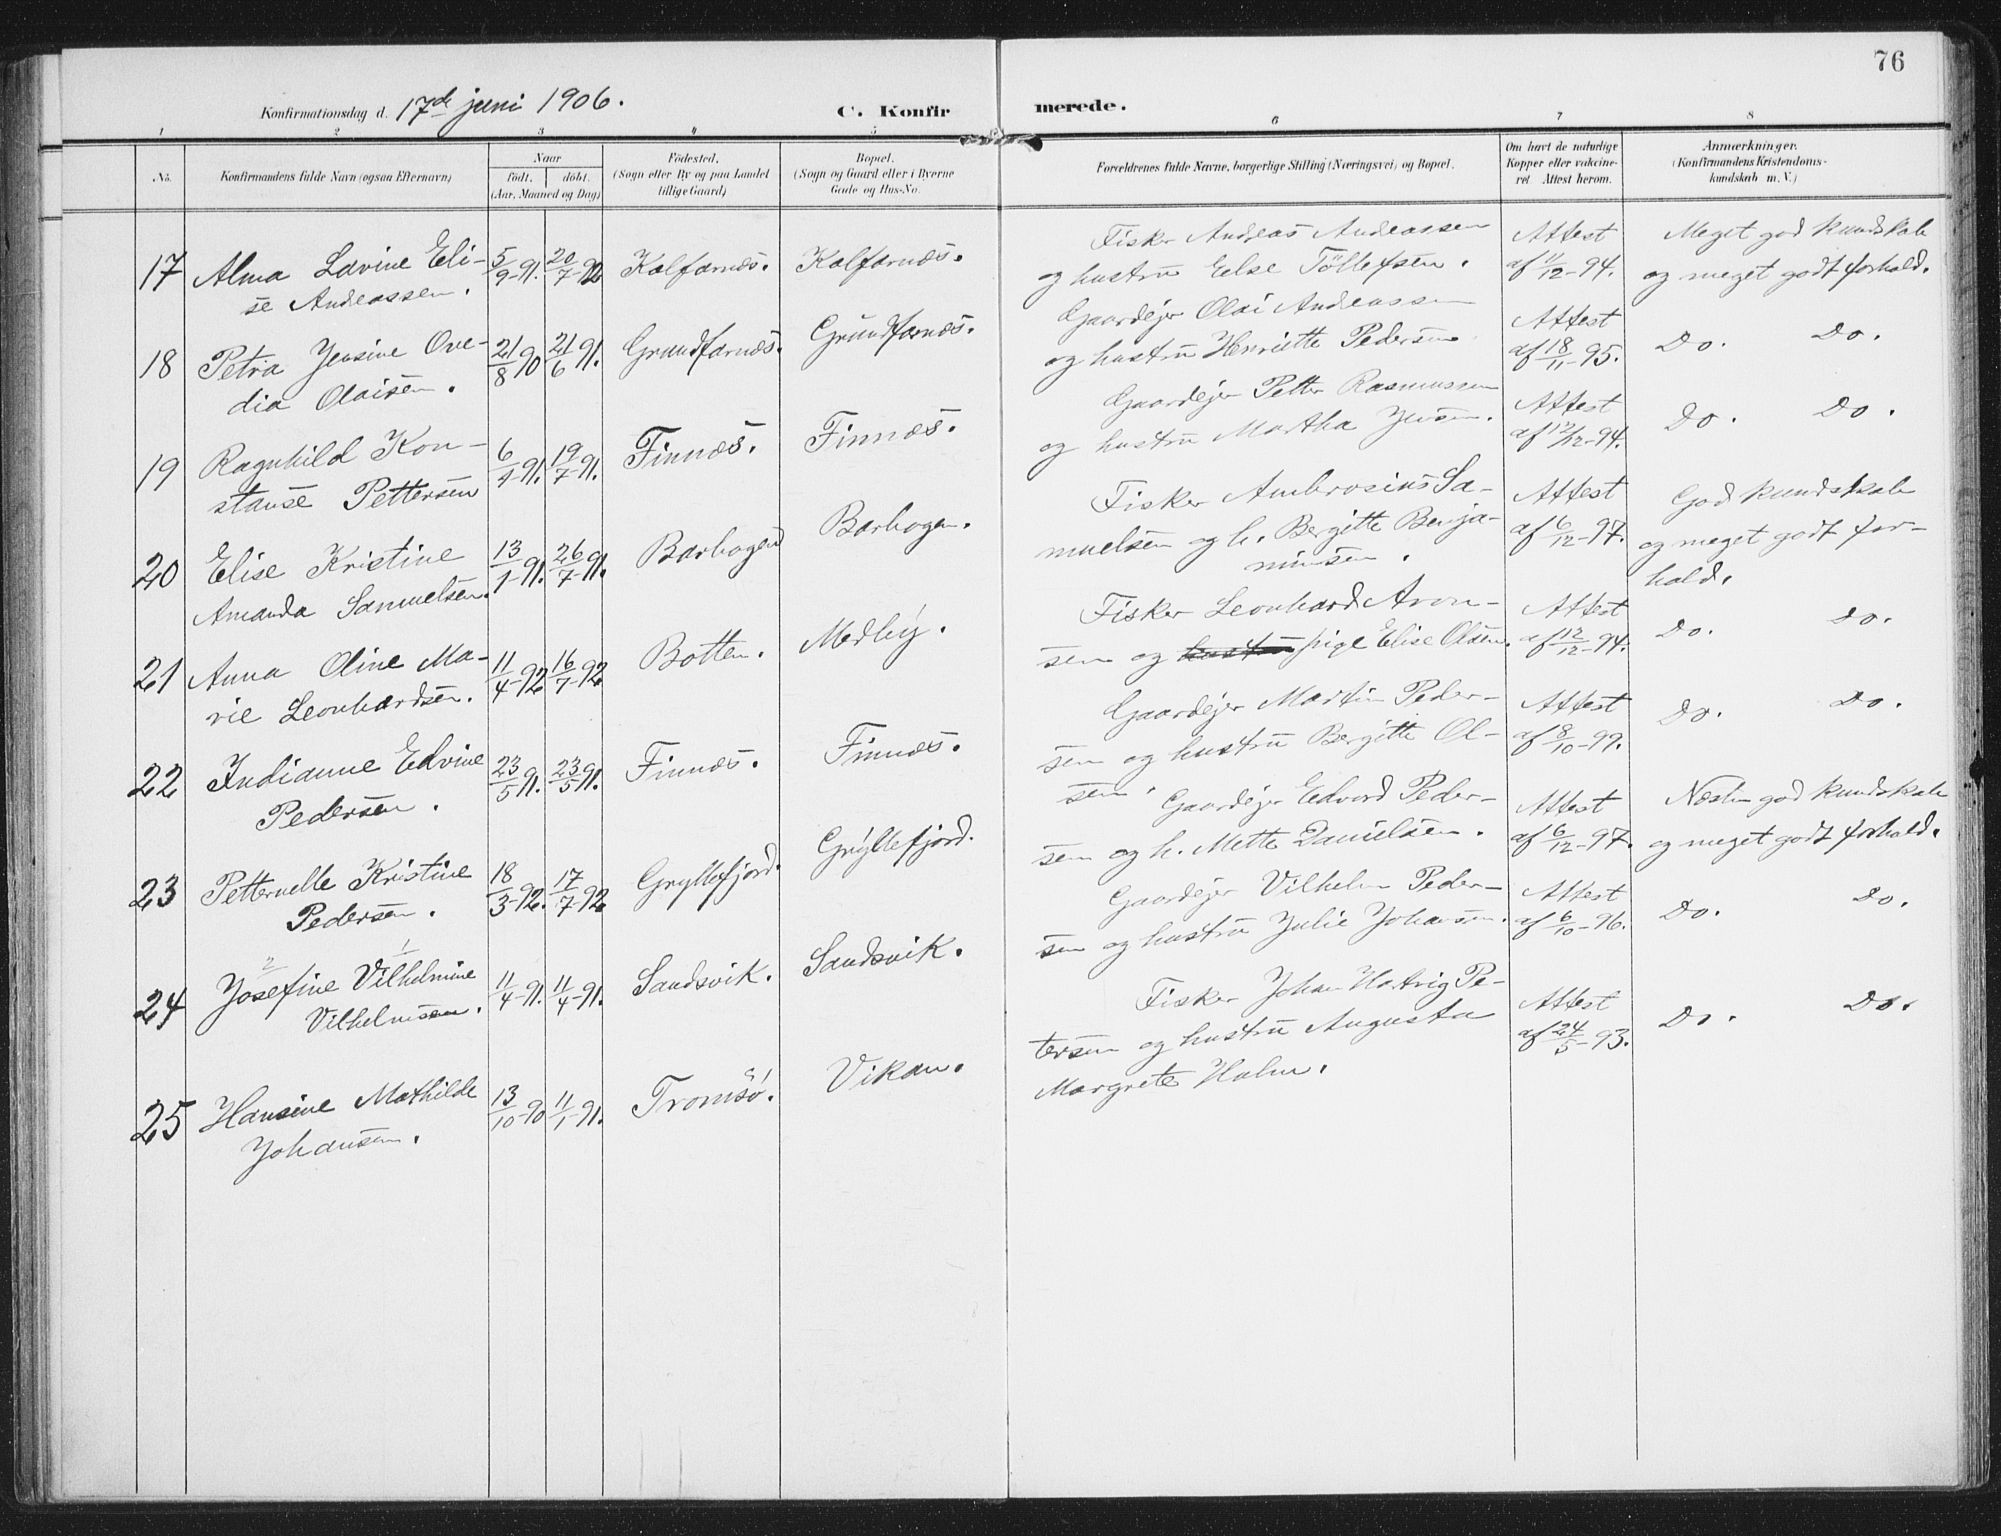 76
Konfirmationsdag d. 17de juni 1906.
C. Konfirmerede.
1 2 3 4 5 6 7 8
No.
Konfirmandens fulde Navn (ogsaa Efternavn)
Naar
födt. döbt.
(Aar, Maaned og Dag)
Födested.
(Sogn eller By og paa Landet
tillige Gaard)
Bopæl.
(Sogn og Gaard eller i Byerne
Gade og Hus-No.
Forældrenes fulde Navne, borgerlige Stilling (Næringsvei) og Bopæl.
Om havt de naturlige
Kopper eller vakcine-
ret Attest herom.
Anmærkninger.
(Konfirmandens Kristendoms-
kundskab m. V.)
17 Alma Lovine Eli-
se Andreassen.
5/9-91. 20/7-92 Kalfarnæs. Kalfarnæs.
Fisker Andreas Andreassen
og hustru Else Töllefsen.
Attest
af 11/12-94.
Meget god kundskab
og meget godt forhold.
18 Petra Jensine Ove-
dia Olaisen.
21/8 90 21/6 91. Grundfarnæs. Grundfarnæs.
Gaardejer Olai Andreassen
og hustru Henriette Pedersen
Attest
af 18/11-95.
Do. Do.
19 Ragnhild Kon-
stanse Pettersen
6/1-91. 19/7-91. Finnæs. Finnæs.
Gaardejer Petter Rasmussen
og hustru Martha Jensen.
Attest
af 12/12-94.
Do. Do.
20 Elise Kristine
Amanda Samuelsen.
13/1-91. 26/7-91. Barhogen Barhogen.
Fisker Ambrosius Sa-
muelsen og h. Bergitte Benja-
minsen.
Attest
af 6/12-97.
God kundskab
og meget godt for-
hold.
21 Anna Oline Ma-
rie Leonhardsen.
11/4-92 16/7-92 Botten. Medby.
Fisker Leonhard Aron-
sen og hustru pige Elise Olsen.
Attest
af 12/12-94.
Do. Do.
22 Indianne Edvine
Pedersen.
23/5 91. 23/5 91. Finnæs. Finnæs.
Gaardejer Martin Peder-
sen og hustru Bergitte Ol-
sen.
Attest
af 8/10-99.
Do. Do.
23 Petternelle Kristine
Pedersen.
18/3-92. 17/7-92 Gryllefjord. Gryllefjord.
Gaardejer Edvard Peder-
sen og h. Mette Danielsen.
Attest
af 6/12-97.
Næsten god kundskab
og meget godt forhold.
2 1
24 Josefine Vilhelmine
Vilhelmsen.
11/4-91. 11/4-91. Sandsvik. Sandsvik.
Gaardejer Vilhelm Peder-
sen og hustru Julie Johansen.
Attest
af 6/10-96.
Do. Do.
25 Hansine Mathilde
Johansen.
13/10-90 11/1-91. Tromsö. Vikan.
Fisker Johan Hartvig Pe-
tersen og hustru Augusta
Margrete Holm.
Attest
af 24/5-93.
Do. Do.